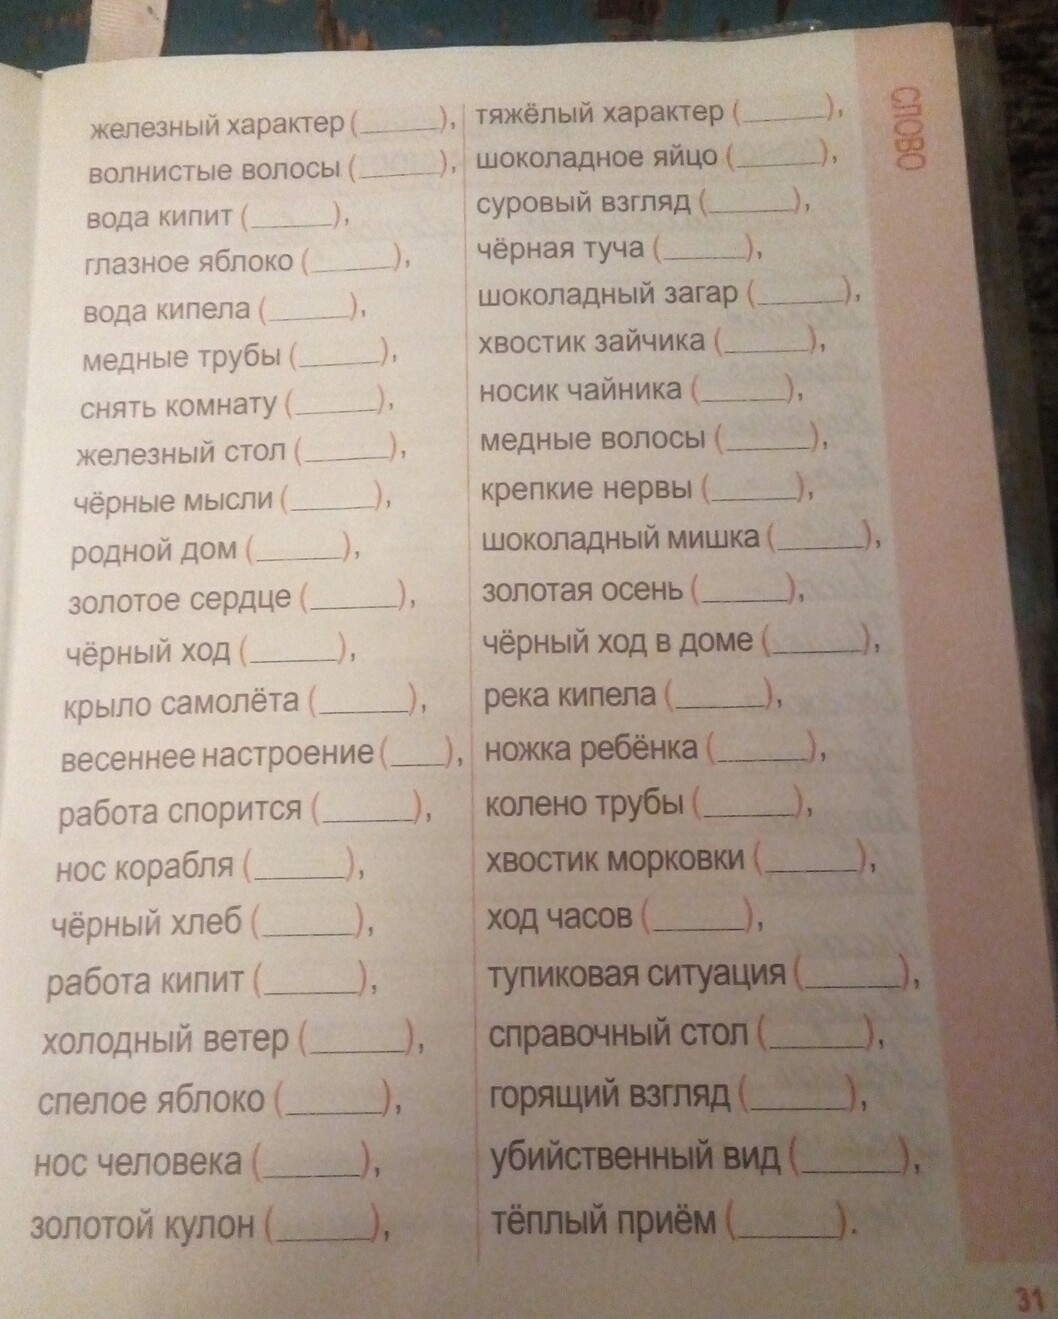 железный характер (______),
волнистые волосы (______),
вода кипит (______),
глазное яблоко (______),
вода кипела (______),
медные трубы (______),
снять комнату (______),
железный стол (______),
чёрные мысли (______),
родной дом (______),
золотое сердце (______),
чёрный ход (______),
крыло самолёта (______),
весеннее настроение (____),
работа спорится (______),
нос корабля (______),
чёрный хлеб (______),
работа кипит (______),
холодный ветер (______),
спелое яблоко (______),
нос человека (______),
золотой кулон (______),
тяжёлый характер (______),
шоколадное яйцо (______),
суровый взгляд (______),
чёрная туча (______),
шоколадный загар (______),
хвостик зайчика (______),
носик чайника (______),
медные волосы (______),
крепкие нервы (______),
шоколадный мишка (______),
золотая осень (______),
чёрный ход в доме (______),
река кипела (______),
ножка ребёнка (______),
колено трубы (______),
хвостик морковки (______),
ход часов (______),
тупиковая ситуация (______),
справочный стол (______),
горящий взгляд (______),
убийственный вид (______),
тёплый приём (______).
СЛОВО
31